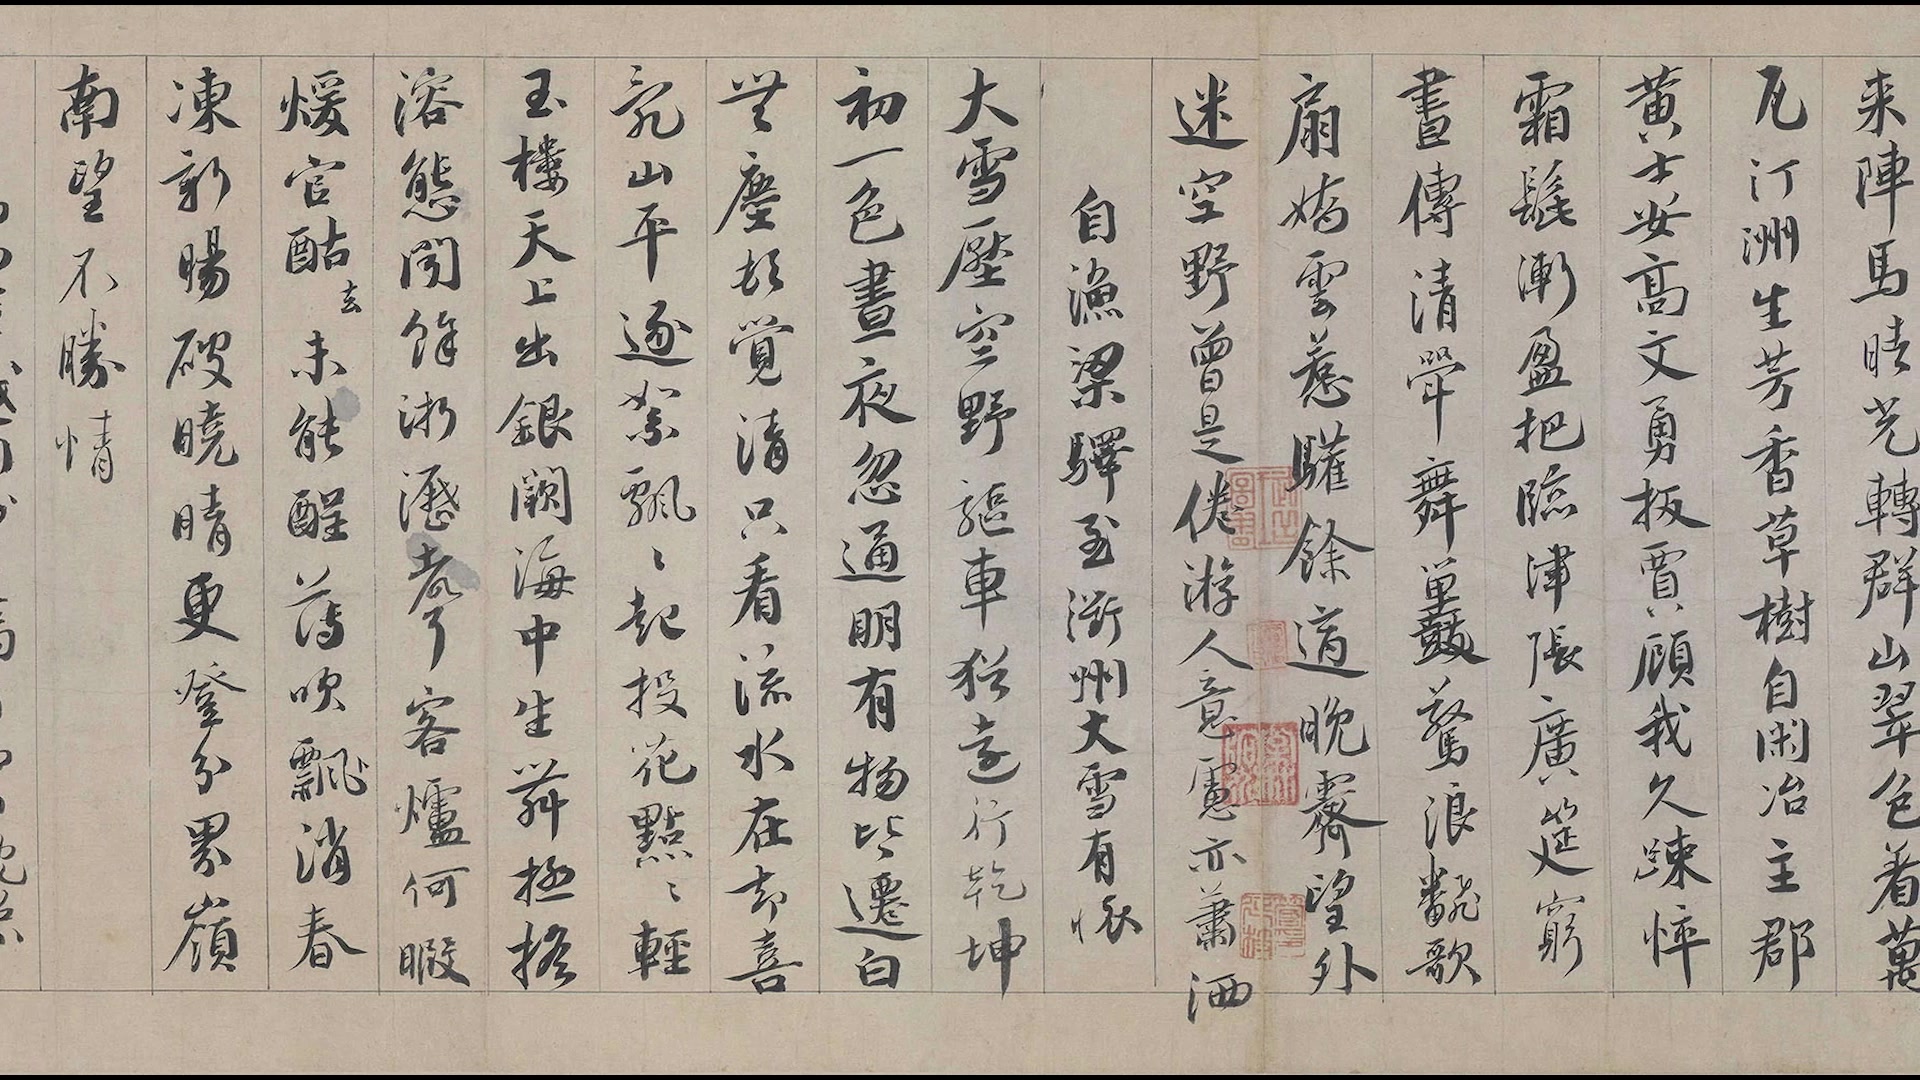 来陣馬晴光轉群山翠色着萬
瓦汀洲生芳香草樹自閑冶主郡
黄士安高文勇扳賈顧我久踈悴
霜髭漸盈把臨津張廣筵窮
晝傳清斝舞單鼓驚浪翻歌
扇嬌雲惹驩餘道晩霽望外
迷空野曾是倦游人意慮亦蕭洒
自漁梁驛至衢州大雪有懷
大雪壓空野驅車猶遠行乾坤
初一色晝夜忽通明有物皆遷白
無塵頓覺清只看流水在却喜
亂山平逐絮飄〻起投花點〻輕
玉樓天上出銀闕海中生舞極摇
溶態聞餘淅瀝聲客爐何暇
煖官酤去未能醒薄吹飄消春
凍新暘破曉晴更登分界嶺
南望不勝情